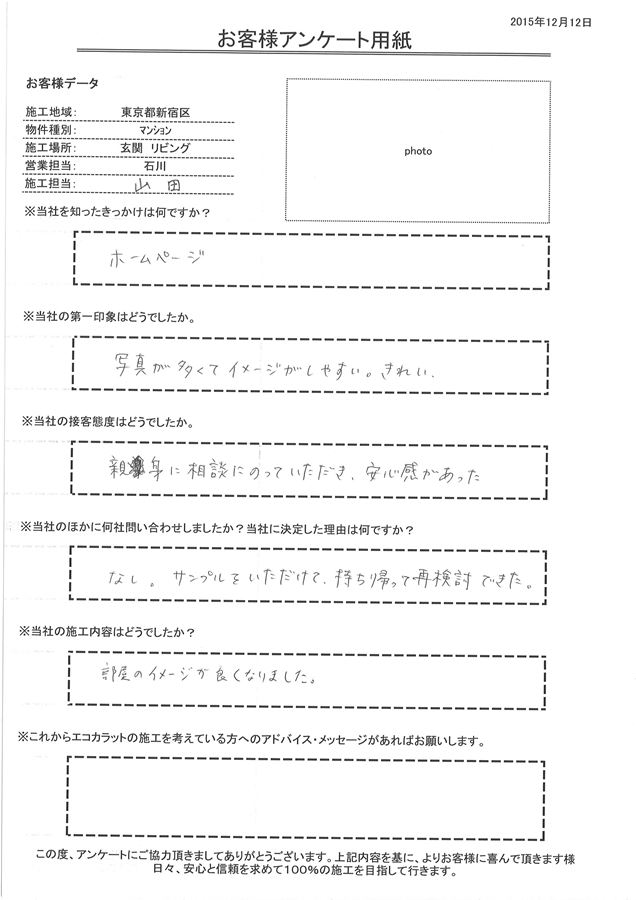 2015年12月12日
お客様アンケート用紙
お客様データ
施工地域： 東京都新宿区
物件種別： ﾏﾝｼｮﾝ
施工場所： 玄関 リビング
営業担当： 石川
施工担当： 山田
photo
※当社を知ったきっかけは何ですか？
ホームページ
※当社の第一印象はどうでしたか。
写真が多くてイメージがしやすい。きれい.
※当社の接客態度はどうでしたか。
親身に相談にのっていただき、安心感があった
※当社のほかに何社問い合わせしましたか？当社に決定した理由は何ですか？
なし。サンプルをいただけて、持ち帰って再検討できた。
※当社の施工内容はどうでしたか？
部屋のイメージが良くなりました。
※これからエコカラットの施工を考えている方へのアドバイス・メッセージがあればお願いします。
この度、アンケートにご協力頂きましてありがとうございます。上記内容を基に、よりお客様に喜んで頂きます様
日々、安心と信頼を求めて100％の施工を目指して行きます。